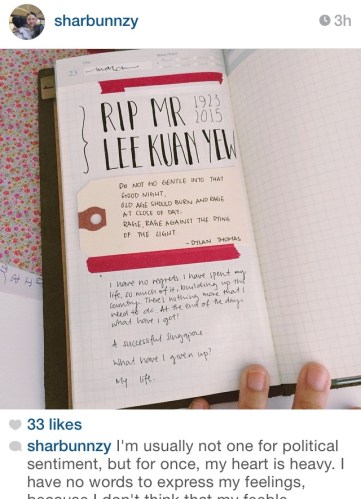 sharbunnzy
3h
23
march
RIP MR 1923
2015
LEE KUAN YEW
DO NOT GO GENTLE INTO THAT
GOOD NIGHT,
OLD AGE SHOULD BURN AND RAGE
AT CLOSE OF DAY.
RAGE, RAGE AGAINST THE DYING
OF THE LIGHT
- DYLAN THOMAS
I have no regrets. I have spent my
life, so much of it, building up this
country. There's nothing more that I
need to do. At the end of the day,
what have I got?
A successful Singapore.
What have I given up?
My life.
33 likes
sharbunnzy I'm usually not one for political
sentiment, but for once, my heart is heavy. I
have no words to express my feelings,
because I don't think that my feeble